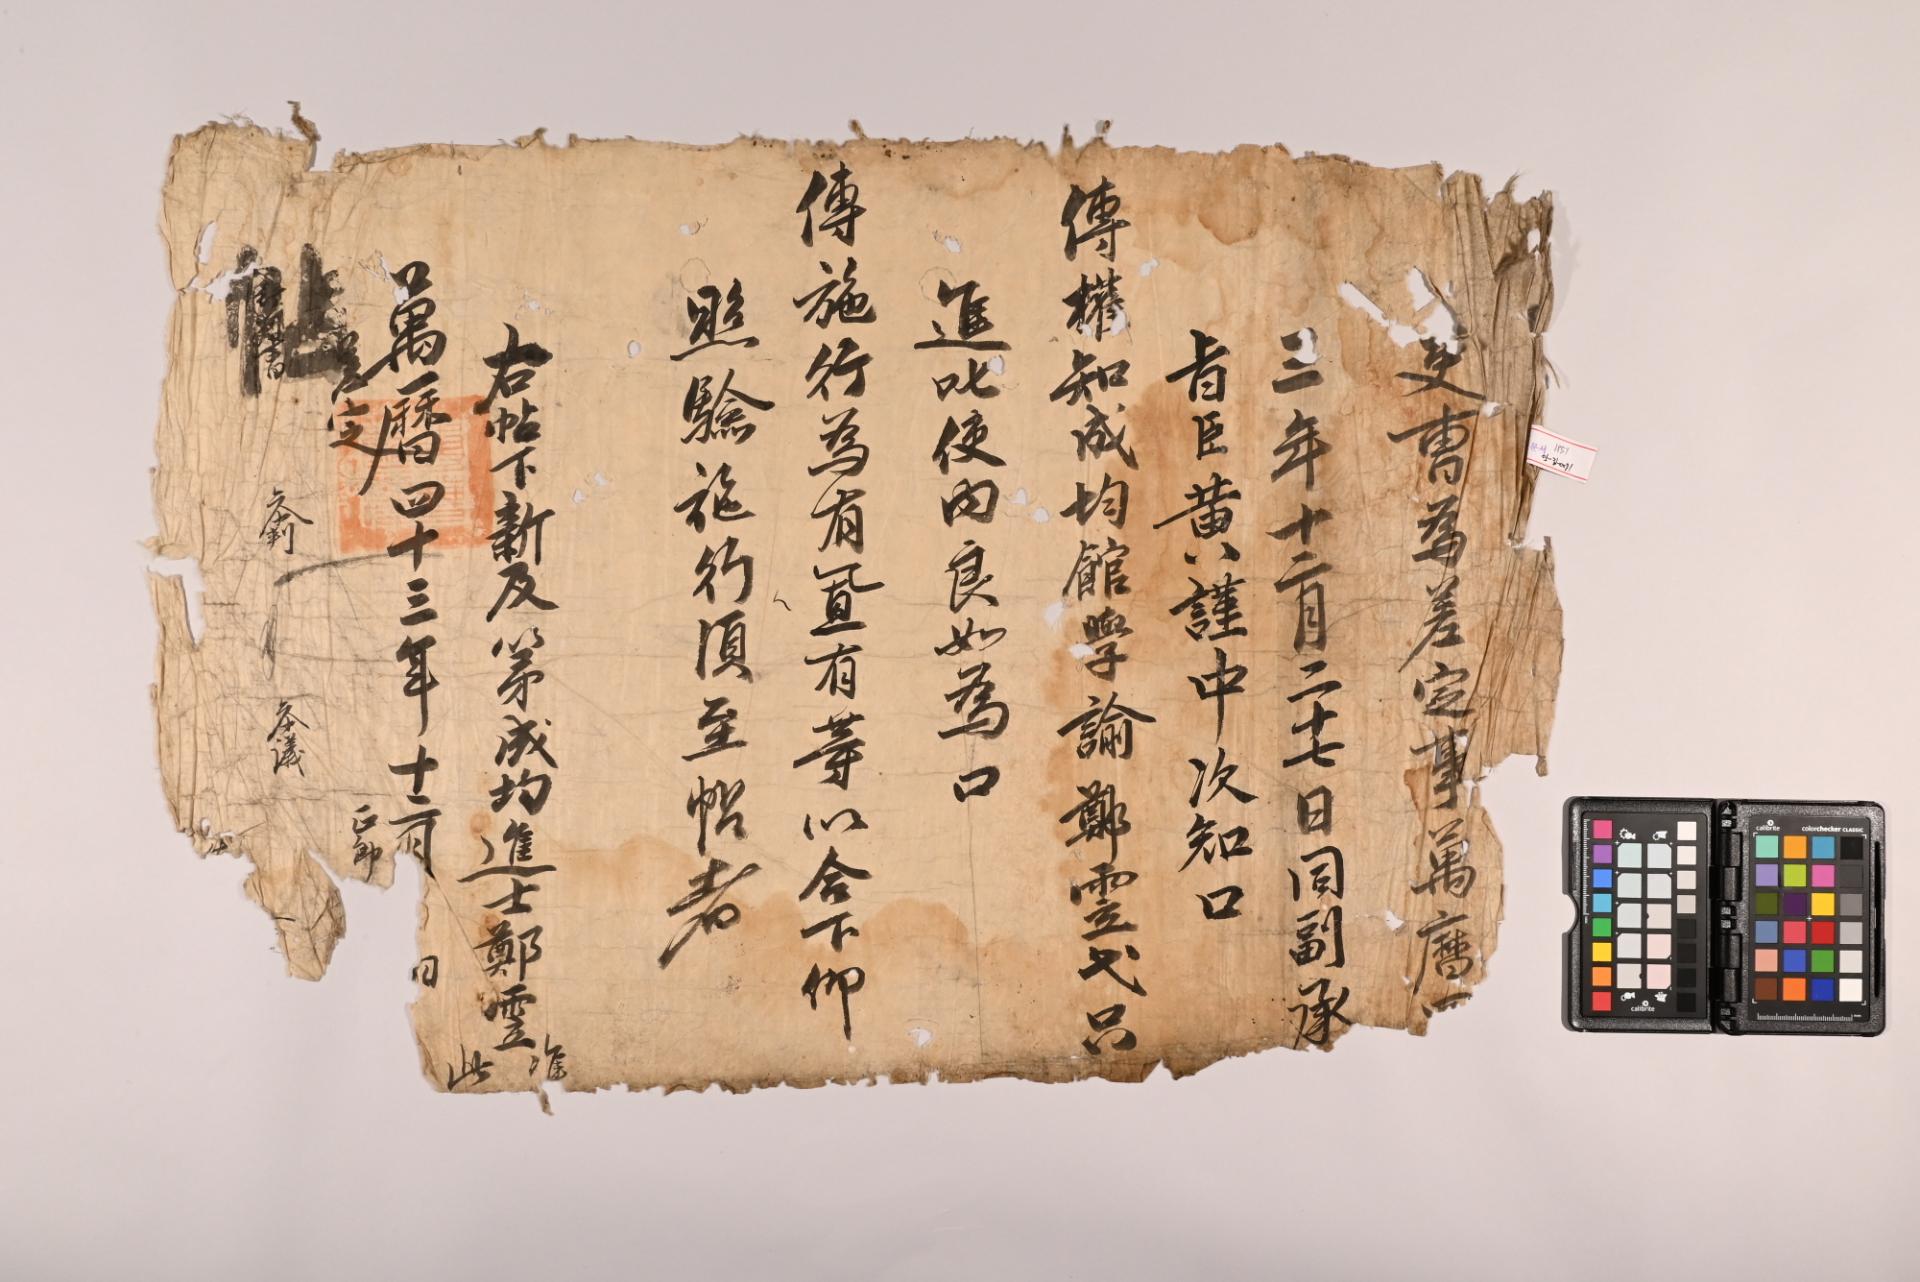 吏曹為差定事萬曆
三年十二月二十七日同副承
旨臣黃謹中次知口
傳權知成均館學諭鄭雲弋只
進叱使內良如為口
傳施行為有置有等以合下仰
照驗施行須至帖者
右帖下新及第成均進士鄭雲 准此
萬曆四十三年十二月 日
差定
帖
參判 參議 正郎
calibrite
calibrite colorchecker CLASSIC